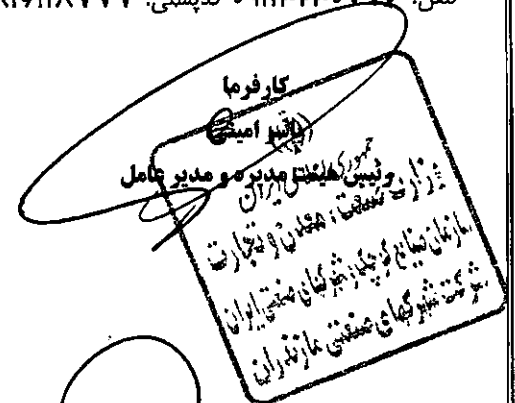 کارفرما
امینی
رئیس هیئت مدیره و مدیر عامل
جمهوری اسلامی ایران
وزارت صنعت، معدن و تجارت
سازمان صنایع کوچک و شهرکهای صنعتی ایران
شرکت شهرکهای صنعتی مازندران